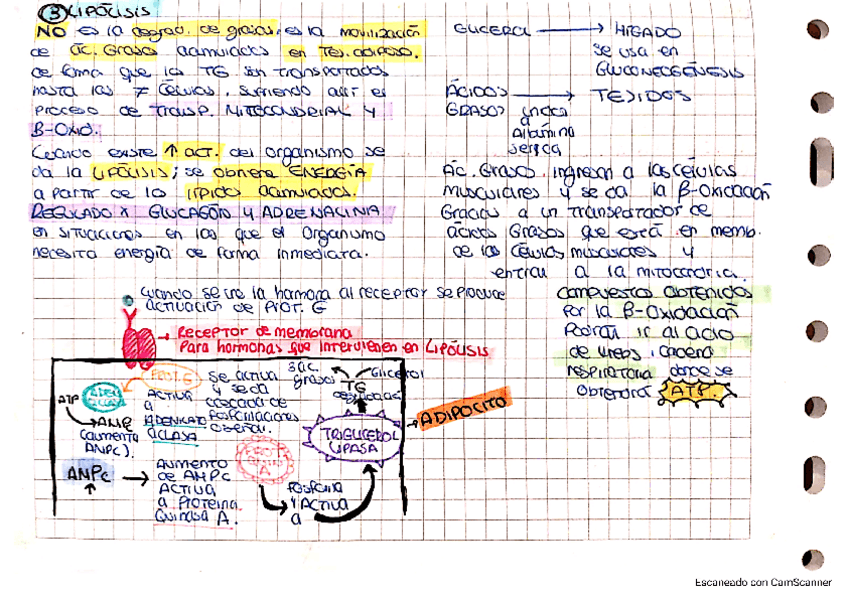 ③ LIPÓLISIS
NO es la degrad. de grasas, es la movilización
de ác. Grasos acumulados en Tej. adiposo.
de forma que los TG son transportados
hasta las ≠ células, sufriendo allí el
proceso de transp. MITOCONDRIAL y
β-OXID.
Cuando existe ↑ act. del organismo se
da la LIPÓLISIS; se obtiene ENERGÍA
a partir de los lípidos acumulados.
REGULADO x GLUCAGÓN Y ADRENALINA
en situaciones en las que el organismo
necesita energía de forma inmediata.
GLICEROL → HIGADO
se usa en
GLUCONEOGÉNESIS
ÁCIDOS → TEJIDOS
GRASOS unidos
a
Albúmina
sérica
Ác. Grasos ingresan a las células
musculares y se da la β-oxidación
Gracias a un transportador de
ácidos Grasos que está en memb.
de las células musculares y
entran a la mitocondria.
compuestos obtenidos
por la β-oxidación
Podrán ir al ciclo
de Krebs, cadena
respiratoria donde se
obtendrá ATP.
Cuando se une la hormona al receptor se produce
activación de Prot. G
→ Receptor de membrana
Para hormonas que intervienen en LIPÓLISIS
PROT. G
ACTIVA
a
ADENILATO
CICLASA
ATP
→ AMPc
(aumenta
AMPc).
se activa
y se da
cascada de
fosforilaciones
3 ác.
grasos
Glicerol
TG
degradación
TRIGLICEROL
LIPASA
→ ADIPOCITO
AMPc ↑ →
AUMENTO
de AMPc
ACTIVA
a Proteína
Quinasa A.
A
fosforila
y ACTIVA
a
Escaneado con CamScanner